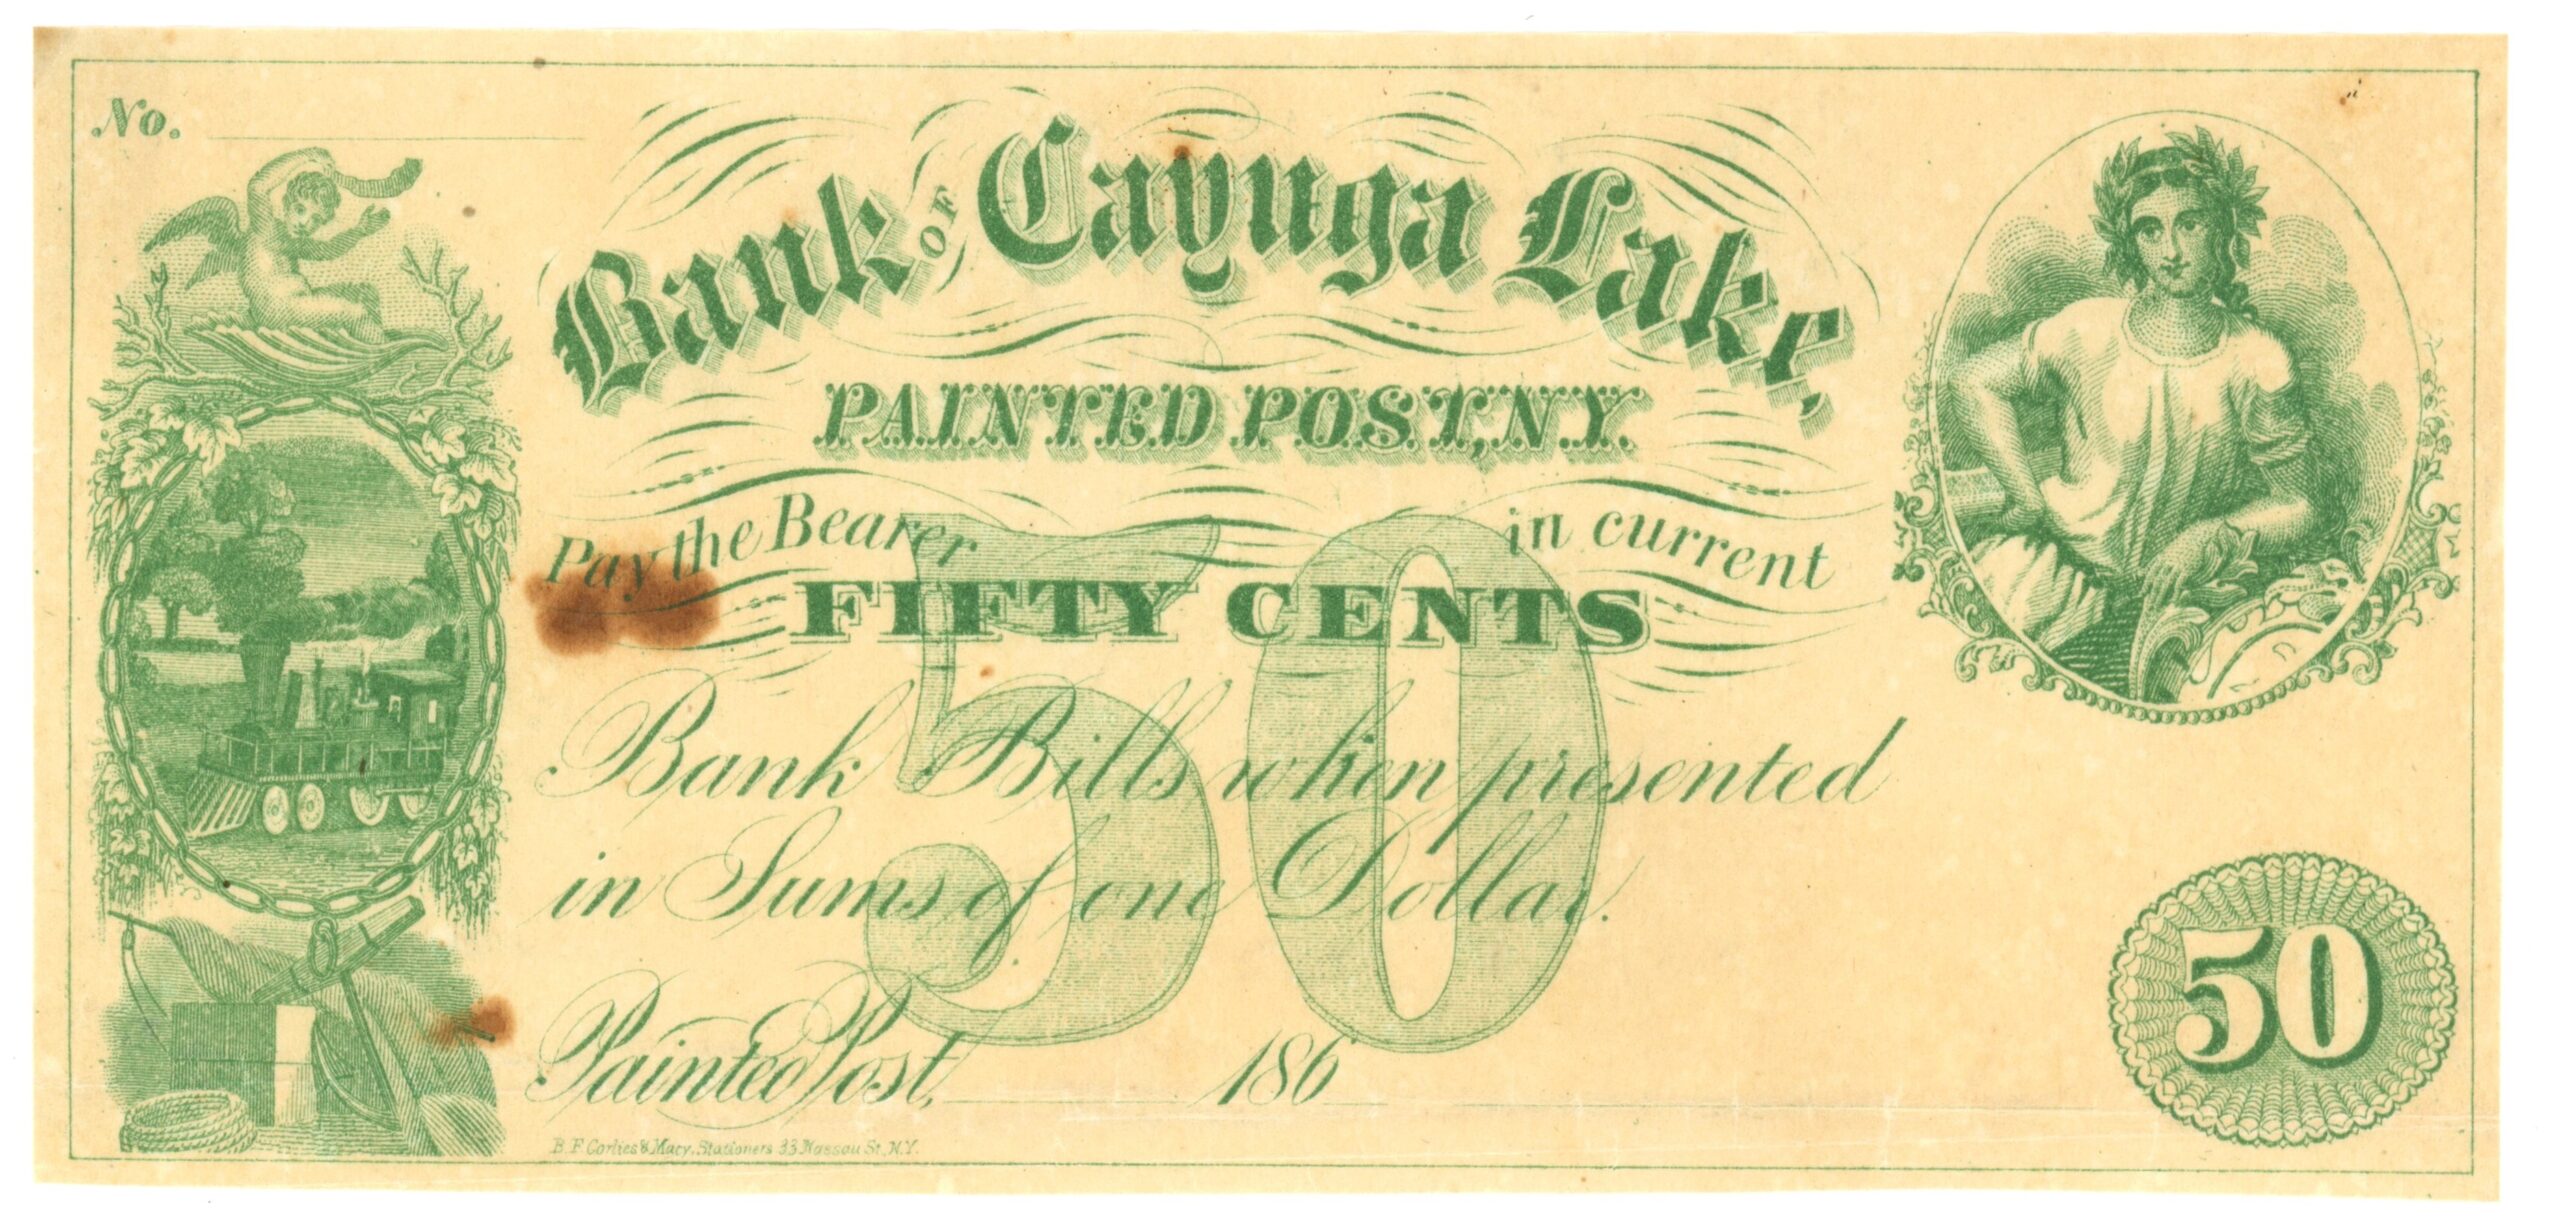 No.
Bank OF Cayuga Lake,
PAINTED POST, N.Y.
Pay the Bearer in current
FIFTY CENTS
50
Bank Bills when presented
in Sums of one Dollar.
Painted Post, 186
50
B. F. Corlies & Macy, Stationers 33 Nassau St., N.Y.